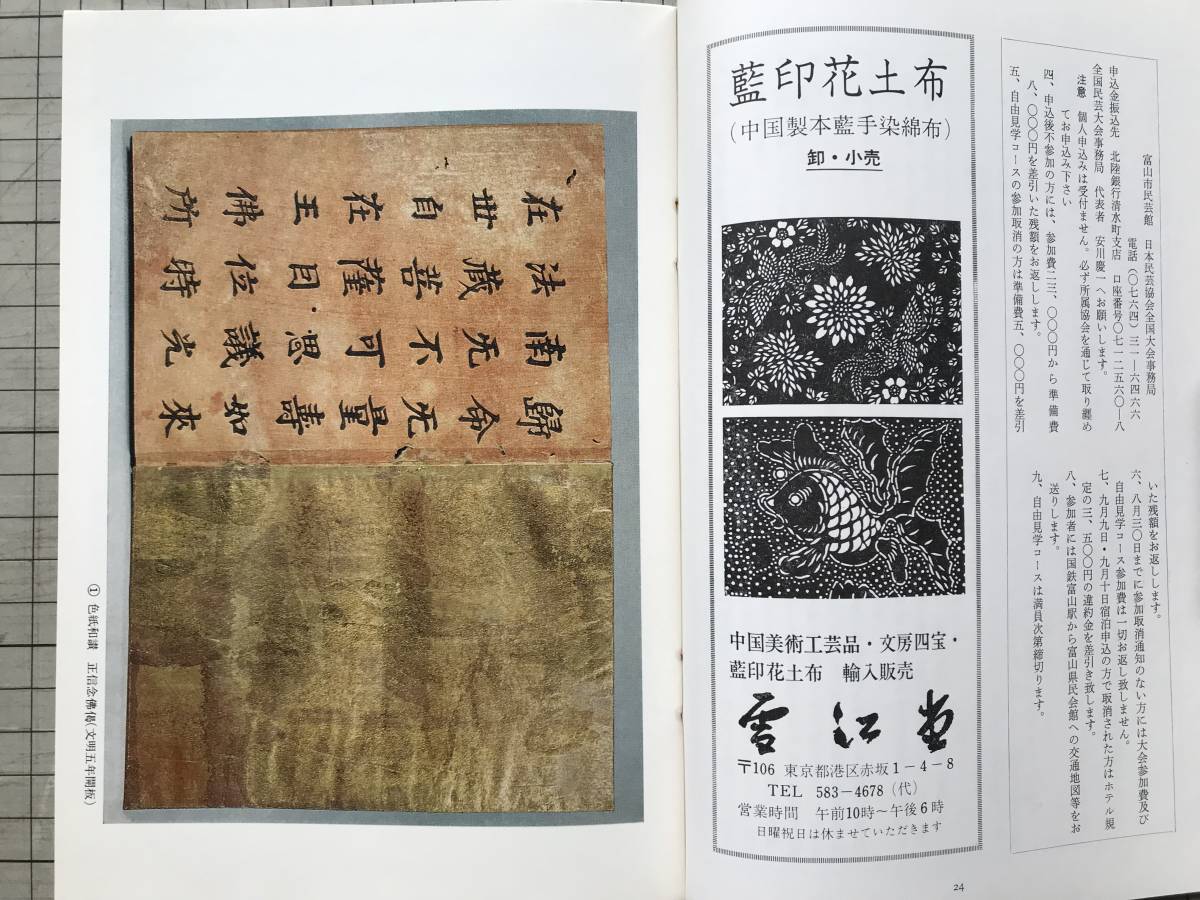 富山市民芸館　日本民芸協会全国大会事務局
電話(〇七六四)三一―六四六六
申込金振込先　北陸銀行清水町支店　口座番号〇七一―二五六〇―八
全国民芸大会事務局　代表者　安川慶一へお願いします。
注意　個人申込みは受付ません。必ず所属協会を通じて取り纏め
てお申込み下さい
四、申込後不参加の方には、参加費二三、〇〇〇円から準備費
八、〇〇〇円を差引いた残額をお返しします。
五、自由見学コースの参加取消の方は準備費五、〇〇〇円を差引
いた残額をお返しします。
六、八月三〇日までに参加取消通知のない方には大会参加費及び
自由見学コース参加費は一切お返し致しません。
七、九月九日・九月十日宿泊申込の方で取消された方はホテル規
定の三、五〇〇円の違約金を差引き致します。
八、参加者には国鉄富山駅から富山県民会館への交通地図等をお
送りします。
九、自由見学コースは満員次第締切ります。
藍印花土布
(中国製本藍手染綿布)
卸・小売
中国美術工芸品・文房四宝・
藍印花土布　輸入販売
雪江堂
〒106 東京都港区赤坂1－4－8
TEL 583－4678 (代)
営業時間　午前10時～午後6時
日曜祝日は休ませていただきます
24
歸命无量壽如來
南无不可思議光
法藏菩薩因位時
在世自在王佛所
① 色紙和讃　正信念佛偈(文明五年開板)